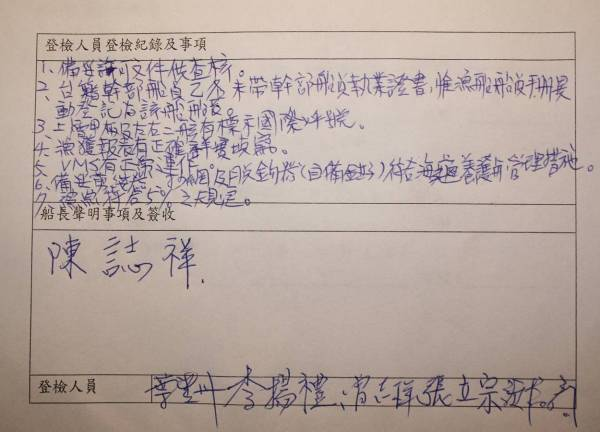 登檢人員登檢紀錄及事項
1、備妥許可文件供查核。
2、台籍幹部船員乙名未帶幹部船員執業證書,惟漁船船員手冊異
動登記在該船服役。
3、上層甲板及左右二舷有標示國際呼號。
4、漁獲報表有正確詳實填寫。
5、VMS有正常運作。
6、備 網及脫鉤器(自備 )符合海 養護與管理措施。
7、 符合5%之規定。
船長聲明事項及簽收
陳誌祥
登檢人員
李揚禮 張立宗